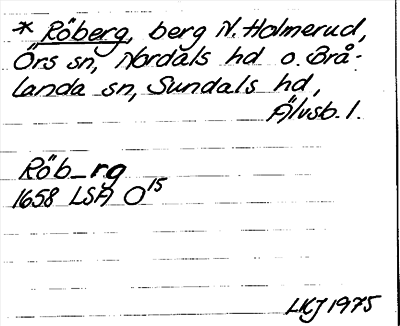 * Röberg, berg N. Holmerud,
Örs sn, Nordals hd o. Brå-
landa sn, Sundals hd,
Älvsb. l.
Röb_rg
1658 LSA O15
LKJ 1975